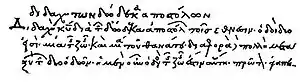 διδαχὴ τῶν δώδεκα ἀποστόλων
Διδαχὴ κυ διὰ τῶν δώδεκα ἀποστόλων τοῖς ἔθνεσιν. ὁδοὶ δύο
εἰσί· μία τῆς ζωῆς καὶ μία τοῦ θανάτου· διαφορὰ δὲ πολλὴ μετα
ξὺ τῶν δύο ὁδῶν. ἡ μὲν οὖν ὁδὸς τῆς ζωῆς ἐστιν αὕτη· πρῶτον